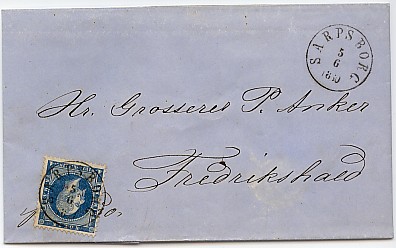 SARPSBORG
5
6
Hr. Grosserer P. Anker
Fredrikshald